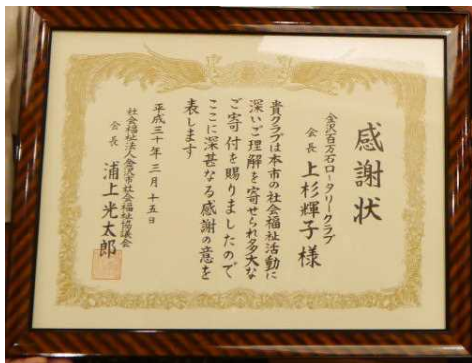 感謝状
金沢百万石ロータリークラブ
会長 上杉輝子様
貴クラブは本市の社会福祉活動に
深いご理解を寄せられ多大な
ご寄付を賜りましたので
ここに深甚なる感謝の意を
表します
平成三十年三月十五日
社会福祉法人金沢市社会福祉協議会
会長 浦上光太郎